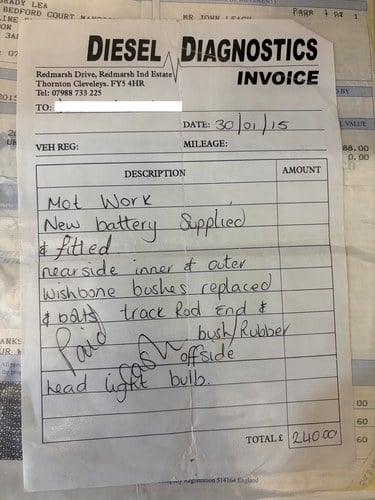 DIESEL DIAGNOSTICS
INVOICE
Redmarsh Drive, Redmarsh Ind Estate
Thornton Cleveleys. FY5 4HR
Tel: 07988 733 225
TO:
DATE: 30/01/15
VEH REG: MILEAGE:
DESCRIPTION AMOUNT
Mot Work
New battery Supplied
& fitted
nearside inner & outer
Wishbone bushes replaced
& bolts track Rod End &
bush/Rubber
Paid Cash offside
head light bulb.
TOTAL £ 240.00
Registration 514164 England
BEDFORD COURT
88.00
0.00
VALUE
00
60
60